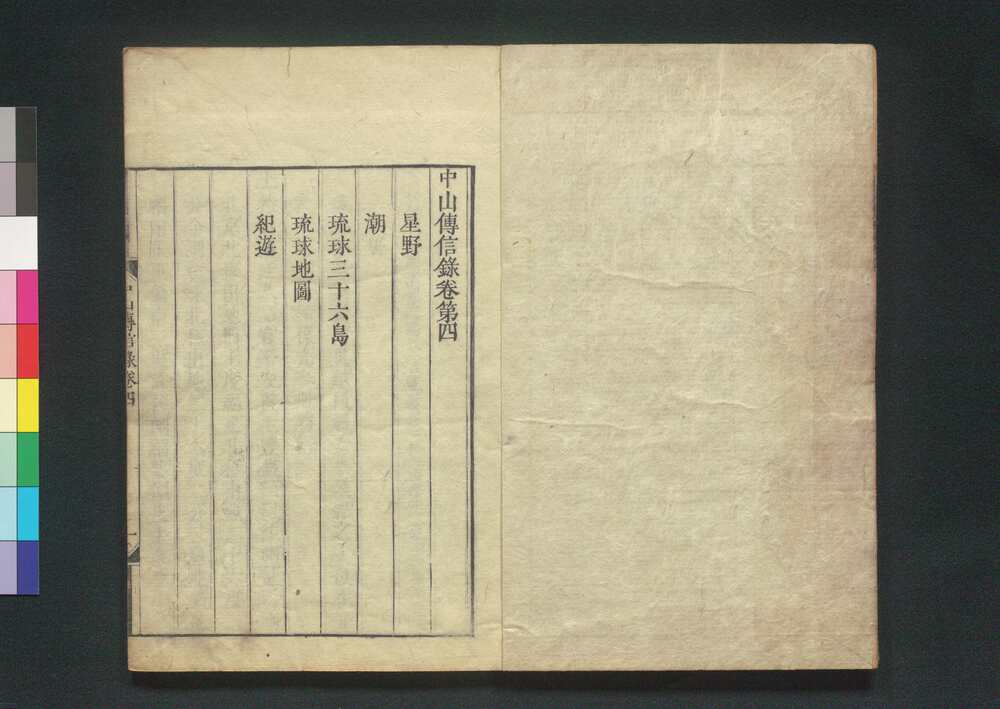 中山傳信錄卷第四
星野
潮
琉球三十六島
琉球地圖
紀遊
中山傳信錄卷四
一